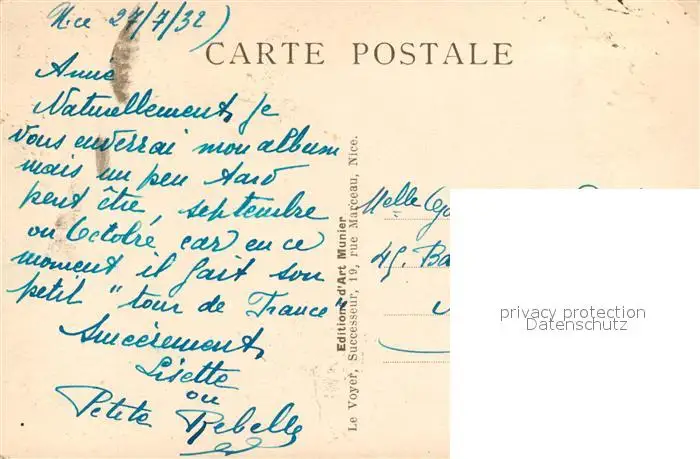 Nice 27/7/32)
CARTE POSTALE
Amie
Naturellement, je
vous enverrai mon album
mais un peu tard
peut être, septembre
ou Octobre car en ce
moment il fait son
petit "tour de France"
Sincèrement,
Lisette
ou
Petite Rebelle
Editions d'Art Munier
Le Voyer, Successeur, 19, rue Marceau, Nice.
Melle
45, Ba
privacy protection
Datenschutz